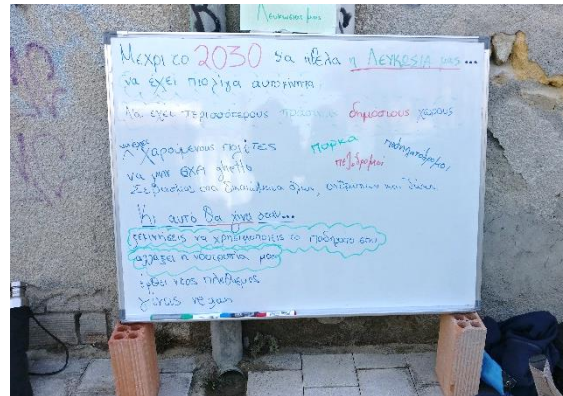 Λευκωσία μας
Μεχρι το 2030 θα ηθελα η ΛΕΥΚΩΣΙΑ μας ...
να έχει πιο λίγα αυτοκίνητα
Να έχει περισσότερους πράσινους δημόσιους χώρους
να έχει χαρούμενους πολίτες πάρκα πεζόδρομοι ποδηλατόδρομοι,
να μην έχει ghetto
Σεβασμός στα δικαιώματα όλων, ανθρώπων και ζώων.
Κι αυτό θα γίνει όταν...
ξεκινήσεις να χρησιμοποιείς το ποδήλατο σου
αλλάξει η νοοτροπία μας
έρθει νέος πληθυσμός
γίνεις vegan